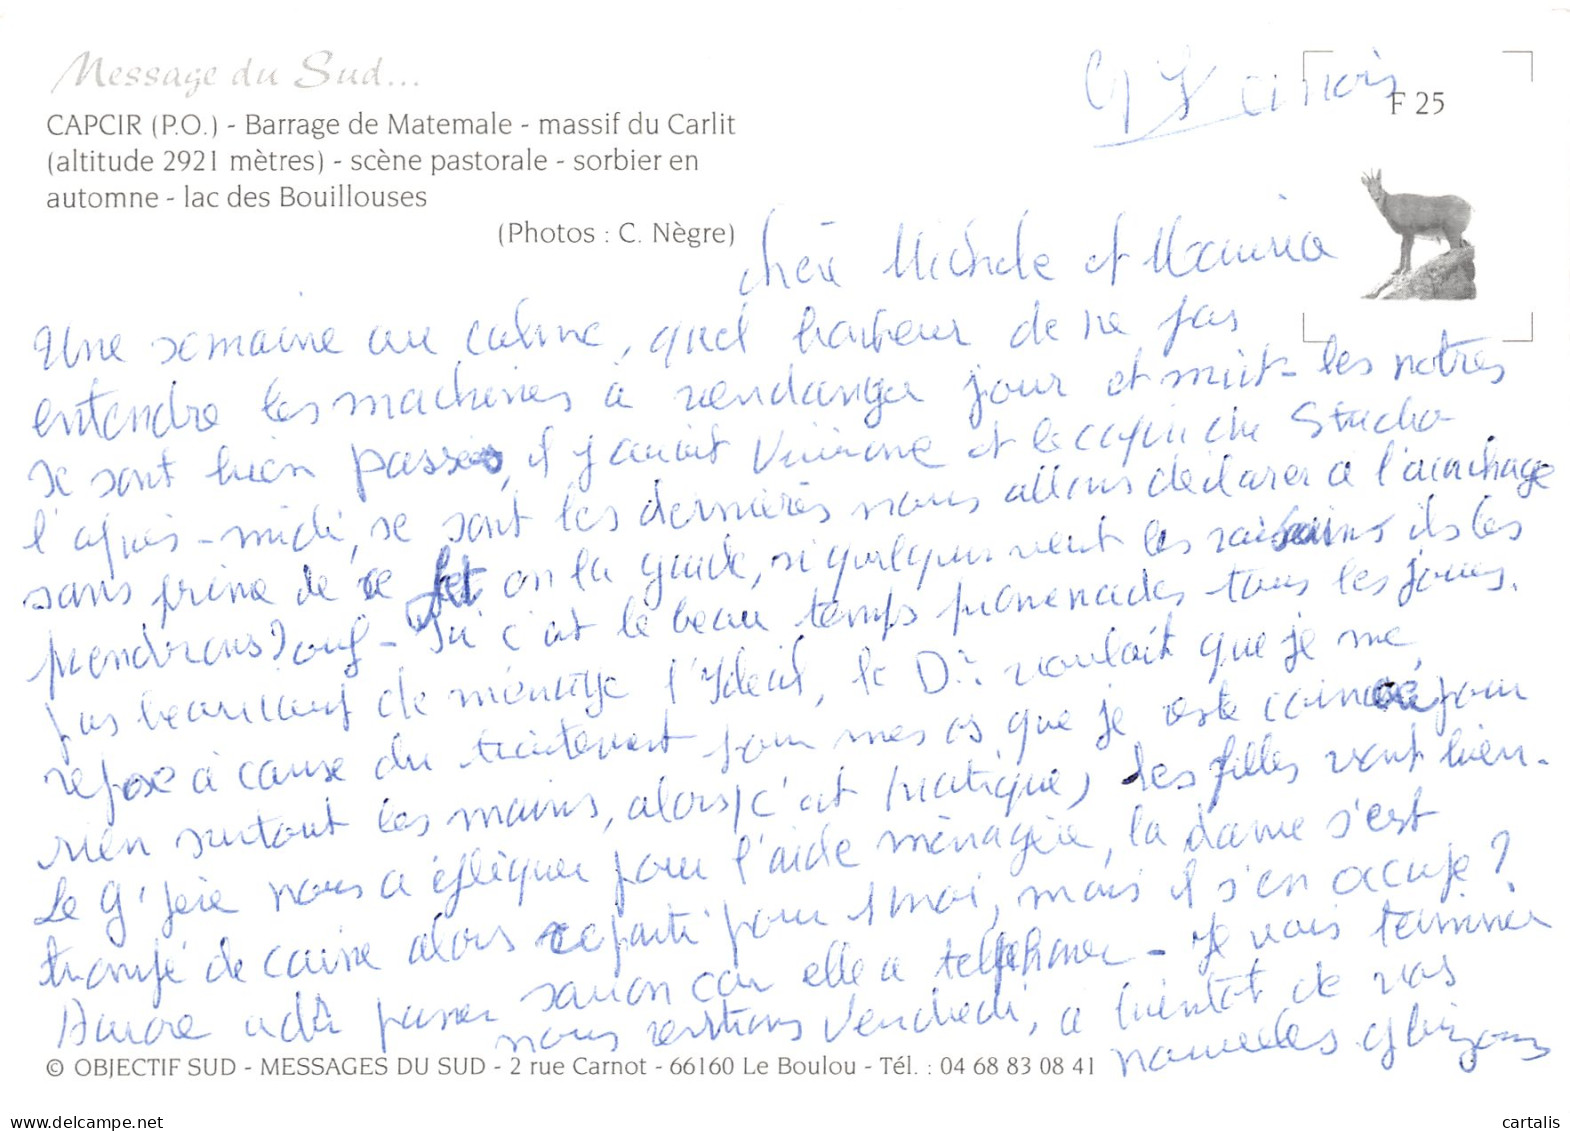 Message du Sud...
CAPCIR (P.O.) - Barrage de Matemale - massif du Carlit
(altitude 2921 mètres) - scène pastorale - sorbier en
automne - lac des Bouillouses
(Photos : C. Nègre)
F 25
Chère Michele et
Une semaine au calme, quel bonheur de ne pas
entendre les machines à vendanger jour et nuit - les notres
se sont bien passées, il y avait Viviane et le copain du Studio
l'après-midi, se sont les dernières nous allons déclarer à l'arrachage
sans prime de ce fet on la garde, si quelqu'un veut les raisins ils les
prendrons? ouf - Ici c'est le beau temps promenades tous les jours.
pas beaucoup de ménage l'Idéal, le Dr. voulait que je me
repose à cause du traitement pour mes os que je reste coincée pour
rien surtout les mains, alors c'est pratique, les filles vont bien.
Le G' père nous a éfliquer pour l'aide ménagère, la dame s'est
trompé de caisse alors reparti pour 1 moi, mais il s'en occupe?
Aurore a dû passer savon car elle a telephoner - Je vais terminer
nous rentrons Vendredi, a bientot de vos
nouvelles gbizous
© OBJECTIF SUD - MESSAGES DU SUD - 2 rue Carnot - 66160 Le Boulou - Tél. : 04 68 83 08 41
cartalis